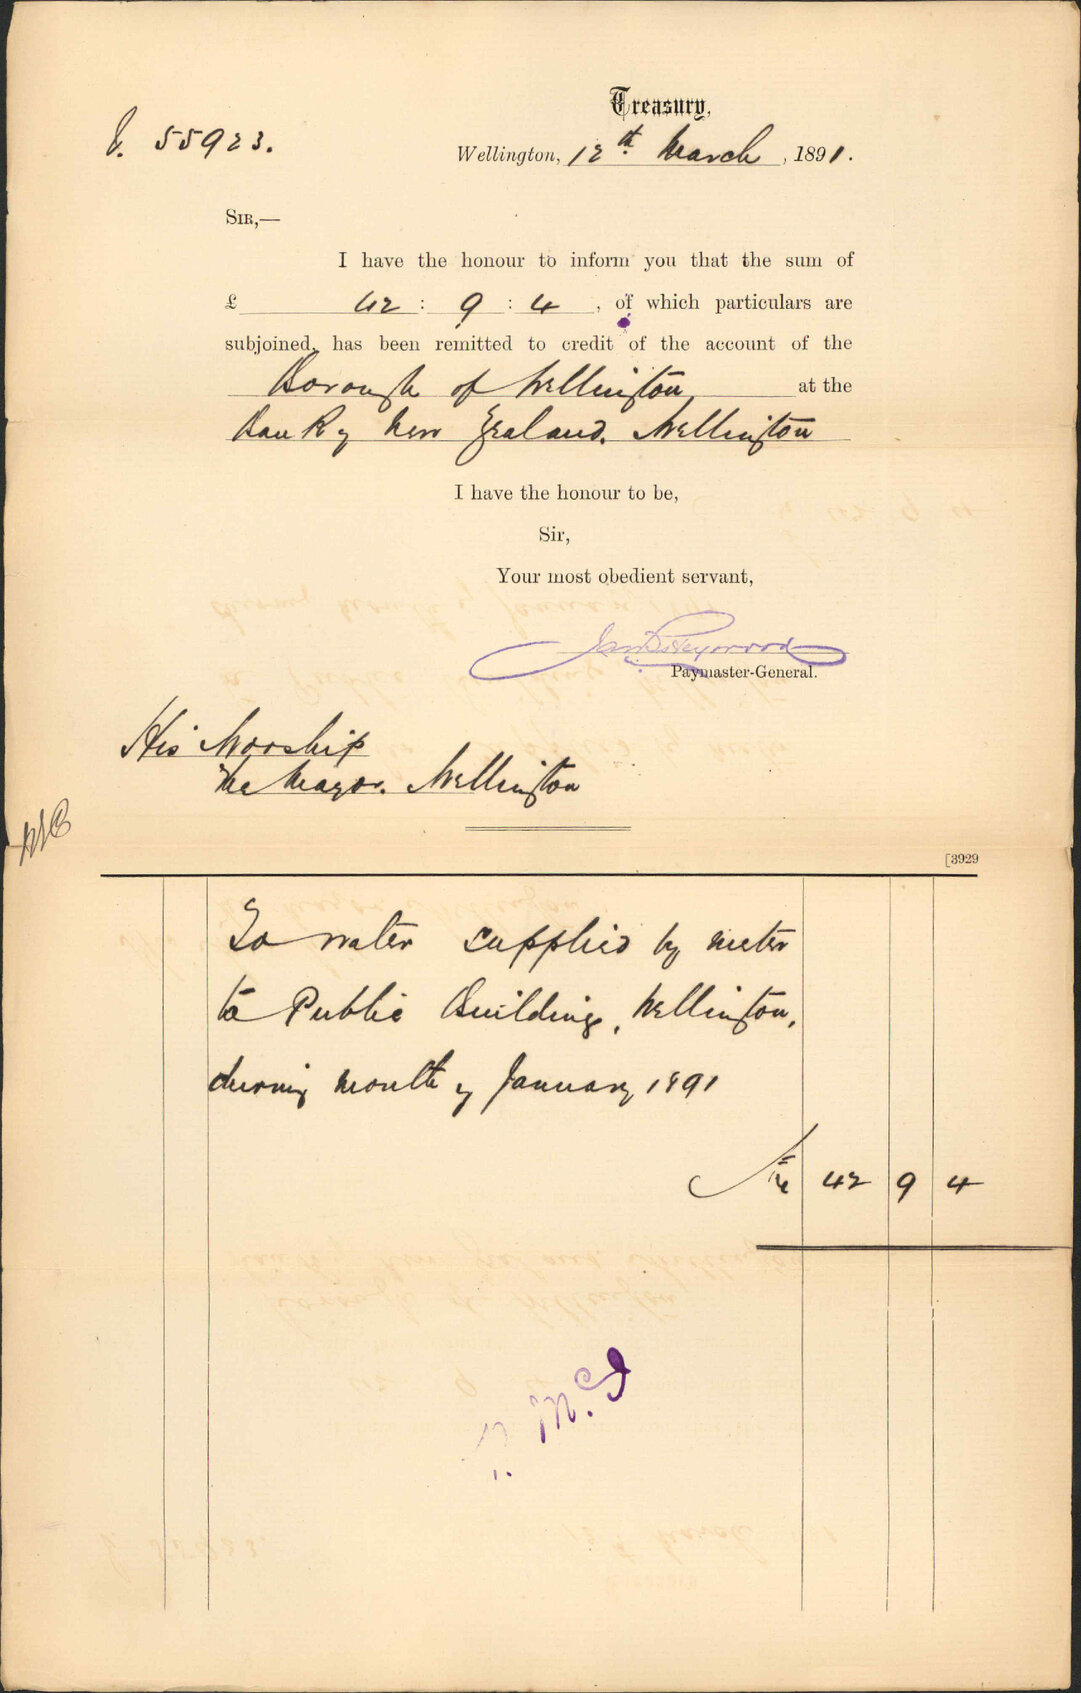 Treasury,
55923.
Wellington, 12th March, 1891.
SIR,—
I have the honour to inform you that the sum of
£ 42 : 9 : 4, of which particulars are
subjoined, has been remitted to credit of the account of the
Borough of Wellington at the
Bank of New Zealand. Wellington
I have the honour to be,
Sir,
Your most obedient servant,
Jas B Heywood
Paymaster-General.
His Worship
The Mayor. Wellington
[3929
To water supplied by meter
to Public Buildings, Wellington,
during month of January 1891
42 9 4